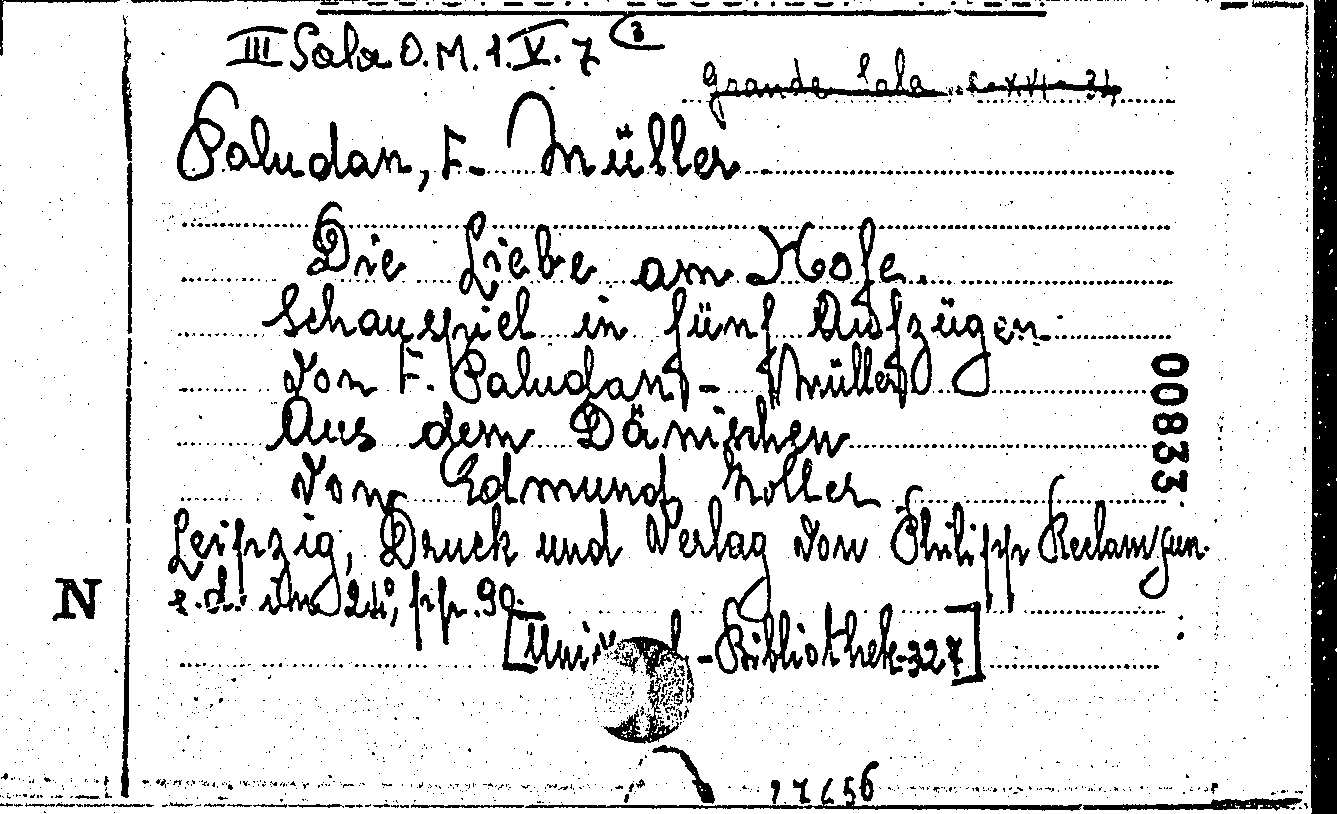 III Sala O.M. 1. V. 7 (3
Grande Sala
Paludan, F. Müller
Die Liebe am Hofe.
Schauspiel in fünf Aufzügen
von F. Paludan-Müller
Aus dem Dänischen
von Edmund Zoller
Leipzig, Druck und Verlag von Philipp Reclam jun.
s.d. in 24°, pp. 90.
-Bibliothek-327]
00833
N